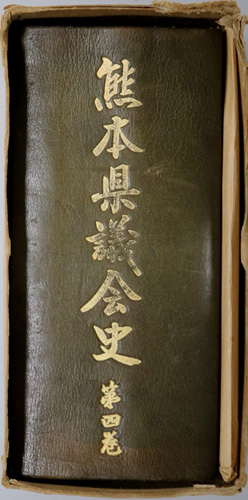 熊本県議会史
第四巻